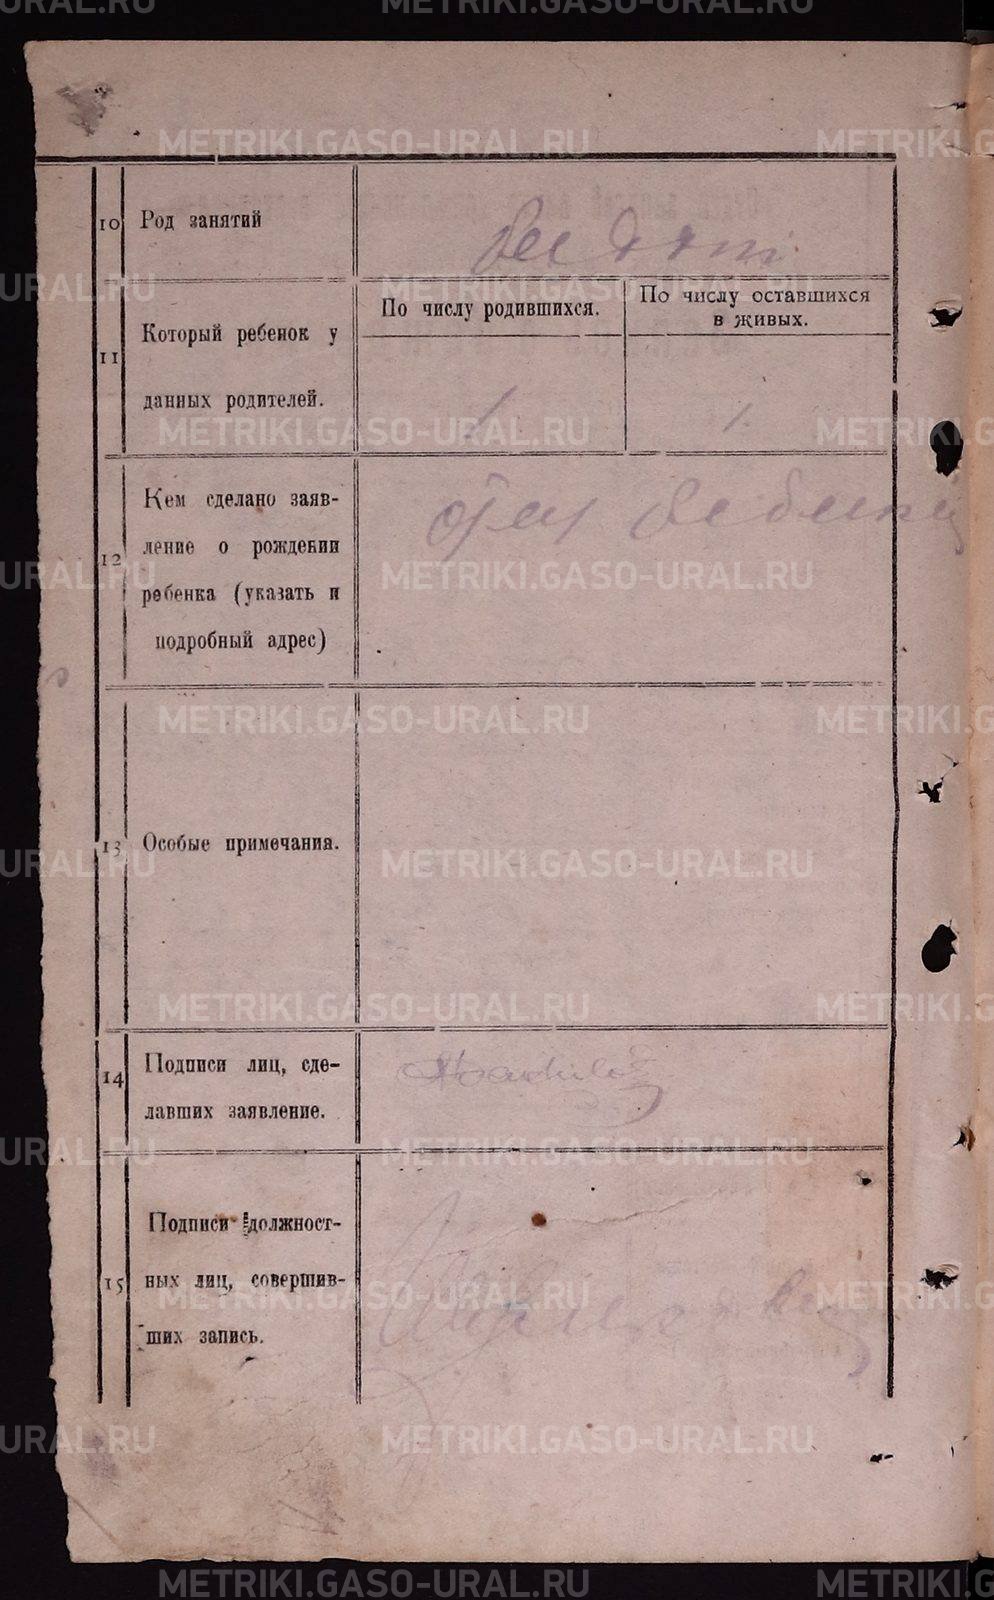 METRIKI.GASO-URAL.RU
10 Род занятий
11 Который ребенок у
данных родителей.
По числу родившихся.
По числу оставшихся
в живых.
1
1.
12 Кем сделано заяв-
ление о рождении
ребенка (указать и
подробный адрес)
отец
13 Особые примечания.
14 Подписи лиц, сде-
лавших заявление.
15 Подписи должност-
ных лиц, совершив-
ших запись.